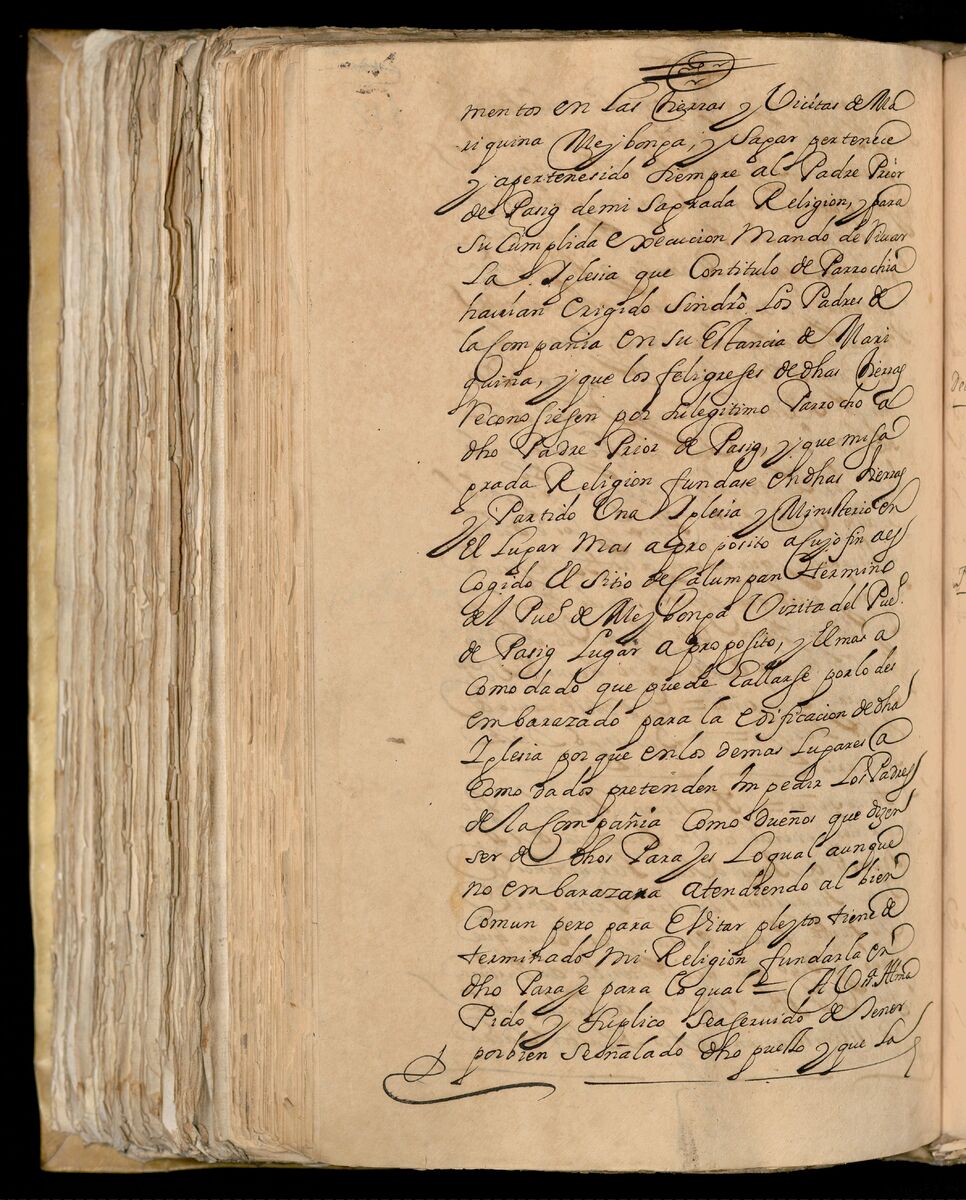 mentos en Las tierras y Vicitas de Ma
riquina Meybonga, y Sapar pertenece
y apertenesido siempre al Padre Prior
de Pasig demi Sagrada Religion, y para
su Cumplida execucion Mando derrivar
La Iglesia que Contitulo de Parrochia
havian Erigido sindrô Los Padres de
la Compania en su Estancia de Mari
quina, y que los feligreses de dhas tierras
reconosiesen por su legitimo Parrocho a
dho Padre Prior de Pasig, y que misa
grada Religion fundase en dhas tierras
y Partido Una Iglesia y Ministerio en
El Lugar Mas apropósito acujo fin aes
Cogido El sitio de Calumpan termino
del Pueº. de Meybonga Vizita del Pueº.
de Pasig Lugar apropósito, y El mas a
Como dado que puede hallarse porlo des
embarazado para la edificacion de dha
Iglesia porque en los demas Lugares a
Como dados pretenden Impedir Los Padres
de la Compañia Como dueños que dizen
ser de dhos Parajes Loqual aunque
no embarazara atendiendo al bien
Comun pero para Evitar pleytos tiene de
terminado Mi Religion fundarla en
dho Paraje para Loqual = A V. S. Illma
Pido y suplico seaservido de tener
porbien señalado dho puesto y que La